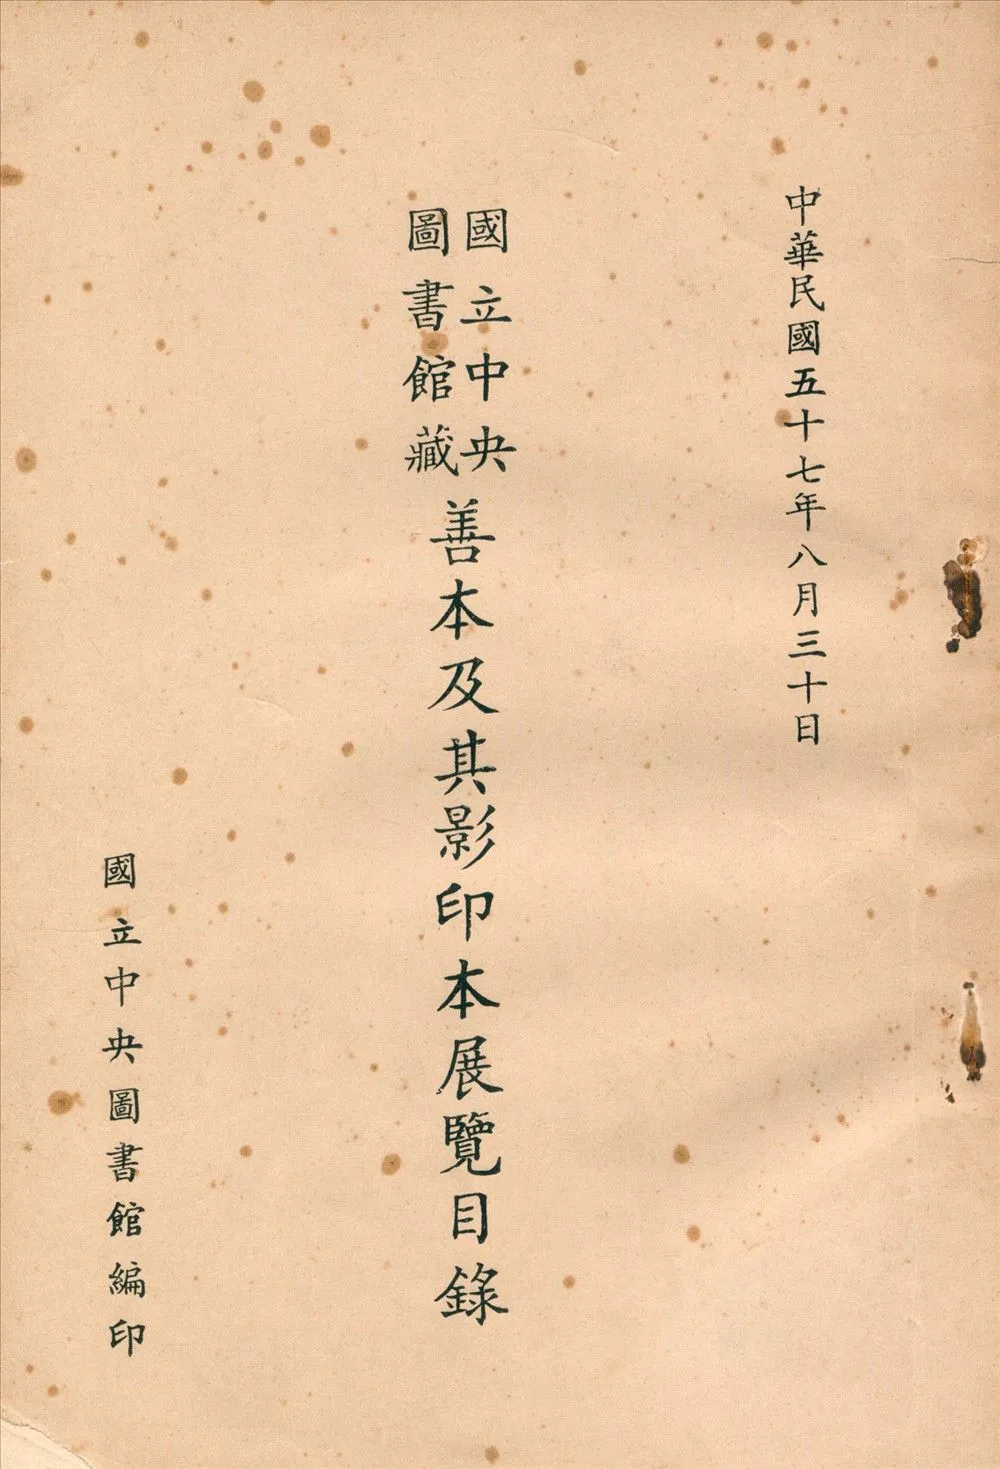 中華民國五十七年八月三十日
國立中央
圖書館藏
善本及其影印本展覽目錄
國立中央圖書館編印